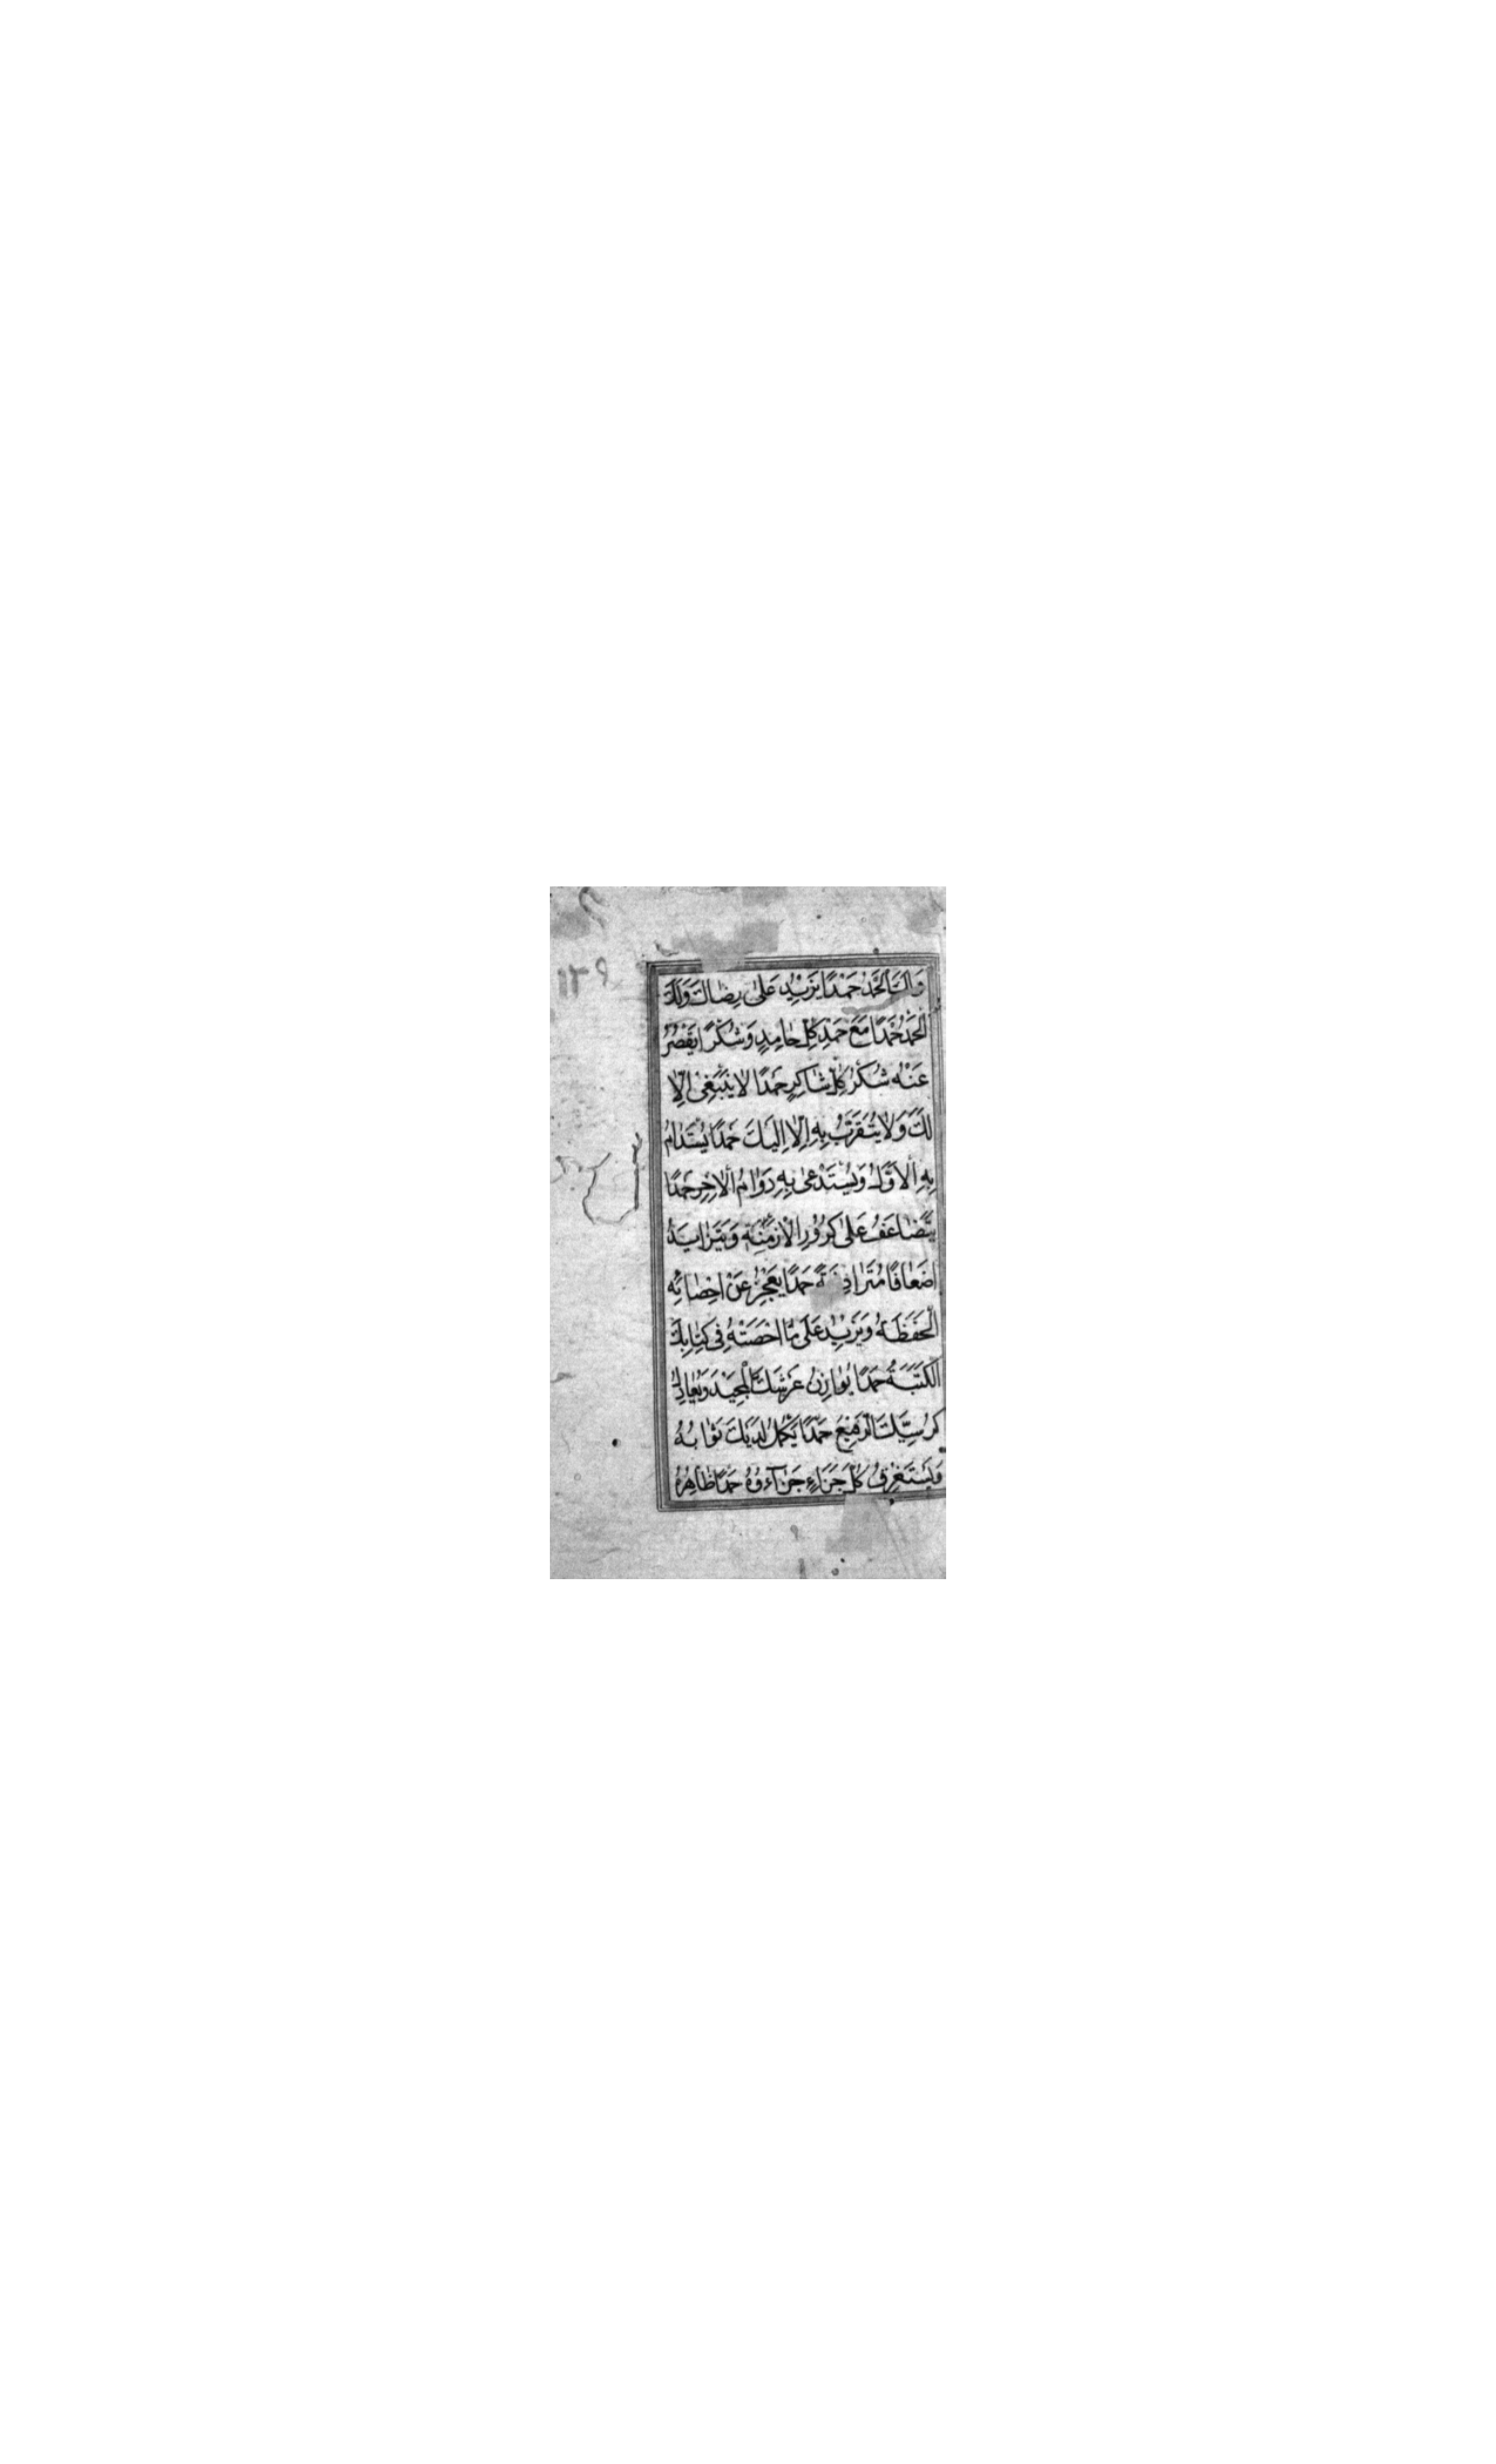 وَلَكَ الْحَمْدُ حَمْدًا يَزيدُ عَلىٰ رِضاكَ وَلَكَ
الْحَمْدُ حَمْدًا مَعَ حَمْدِ كُلِّ حٰامِدٍ وَشُكْرًا يَقْصُرُ
عَنْهُ شُكْرُ كُلِّ شٰاكِرٍ حَمْدًا لا يَنْبَغي اِلّا
لَكَ وَلا يُتَقَرَّبُ بِهِ اِلّا اِلَيْكَ حَمْدًا يُسْتَدٰامُ
بِهِ الْاَوَّلُ وَيُسْتَدْعىٰ بِهِ دَوٰامُ الْاٰخِرِ حَمْدًا
يَتَضٰاعَفُ عَلىٰ كُرُورِ الْاَزْمِنَةِ وَيَتَزٰايَدُ
اَضْعٰافًا مُتَرٰادِفَةً حَمْدًا يَعْجِزُ عَنْ اِحْصٰائِهِ
الْحَفَظَةُ وَيَزيدُ عَلىٰ مٰا اَحْصَتْهُ في كِتٰابِكَ
الْكَتَبَةُ حَمْدًا يُوٰازِنُ عَرْشَكَ الْمَجيدَ وَيُعٰادِلُ
كُرْسِيَّكَ الرَّفيعَ حَمْدًا يَكْمُلُ لَدَيْكَ ثَوٰابُهُ
وَيَسْتَغْرِقُ كُلَّ جَزٰاءٍ جَزٰآؤُهُ حَمْدًا ظٰاهِرُهُ